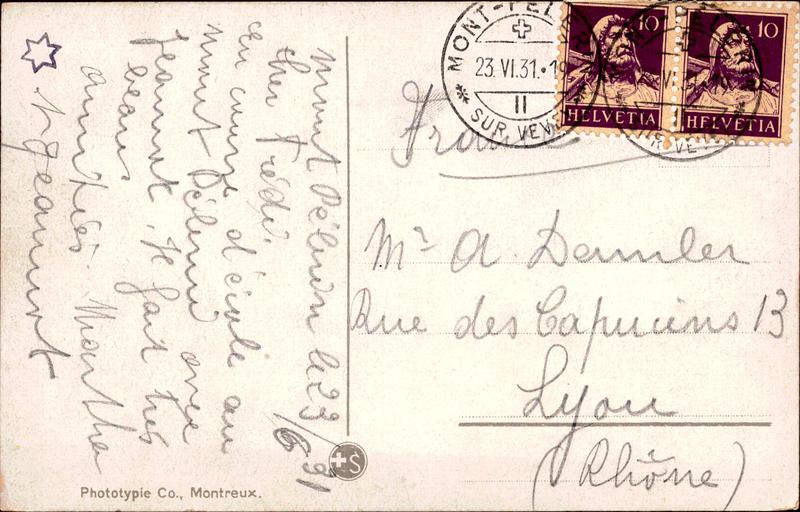 Mont Pélerin le 23/6 31
cher Frédi,
en course d'école au
mont Pélerin avec
Jeannot. Il fait très
beau
amitiés. Martha
+ Jeannot
Phototypie Co., Montreux.
+S
MONT-PÉLERIN
23.VI.31.-19
II
SUR VEVEY
10
HELVETIA
10
HELVETIA
France
Mr A. Demler
Rue des Capucins 13
Lyon
(Rhône)